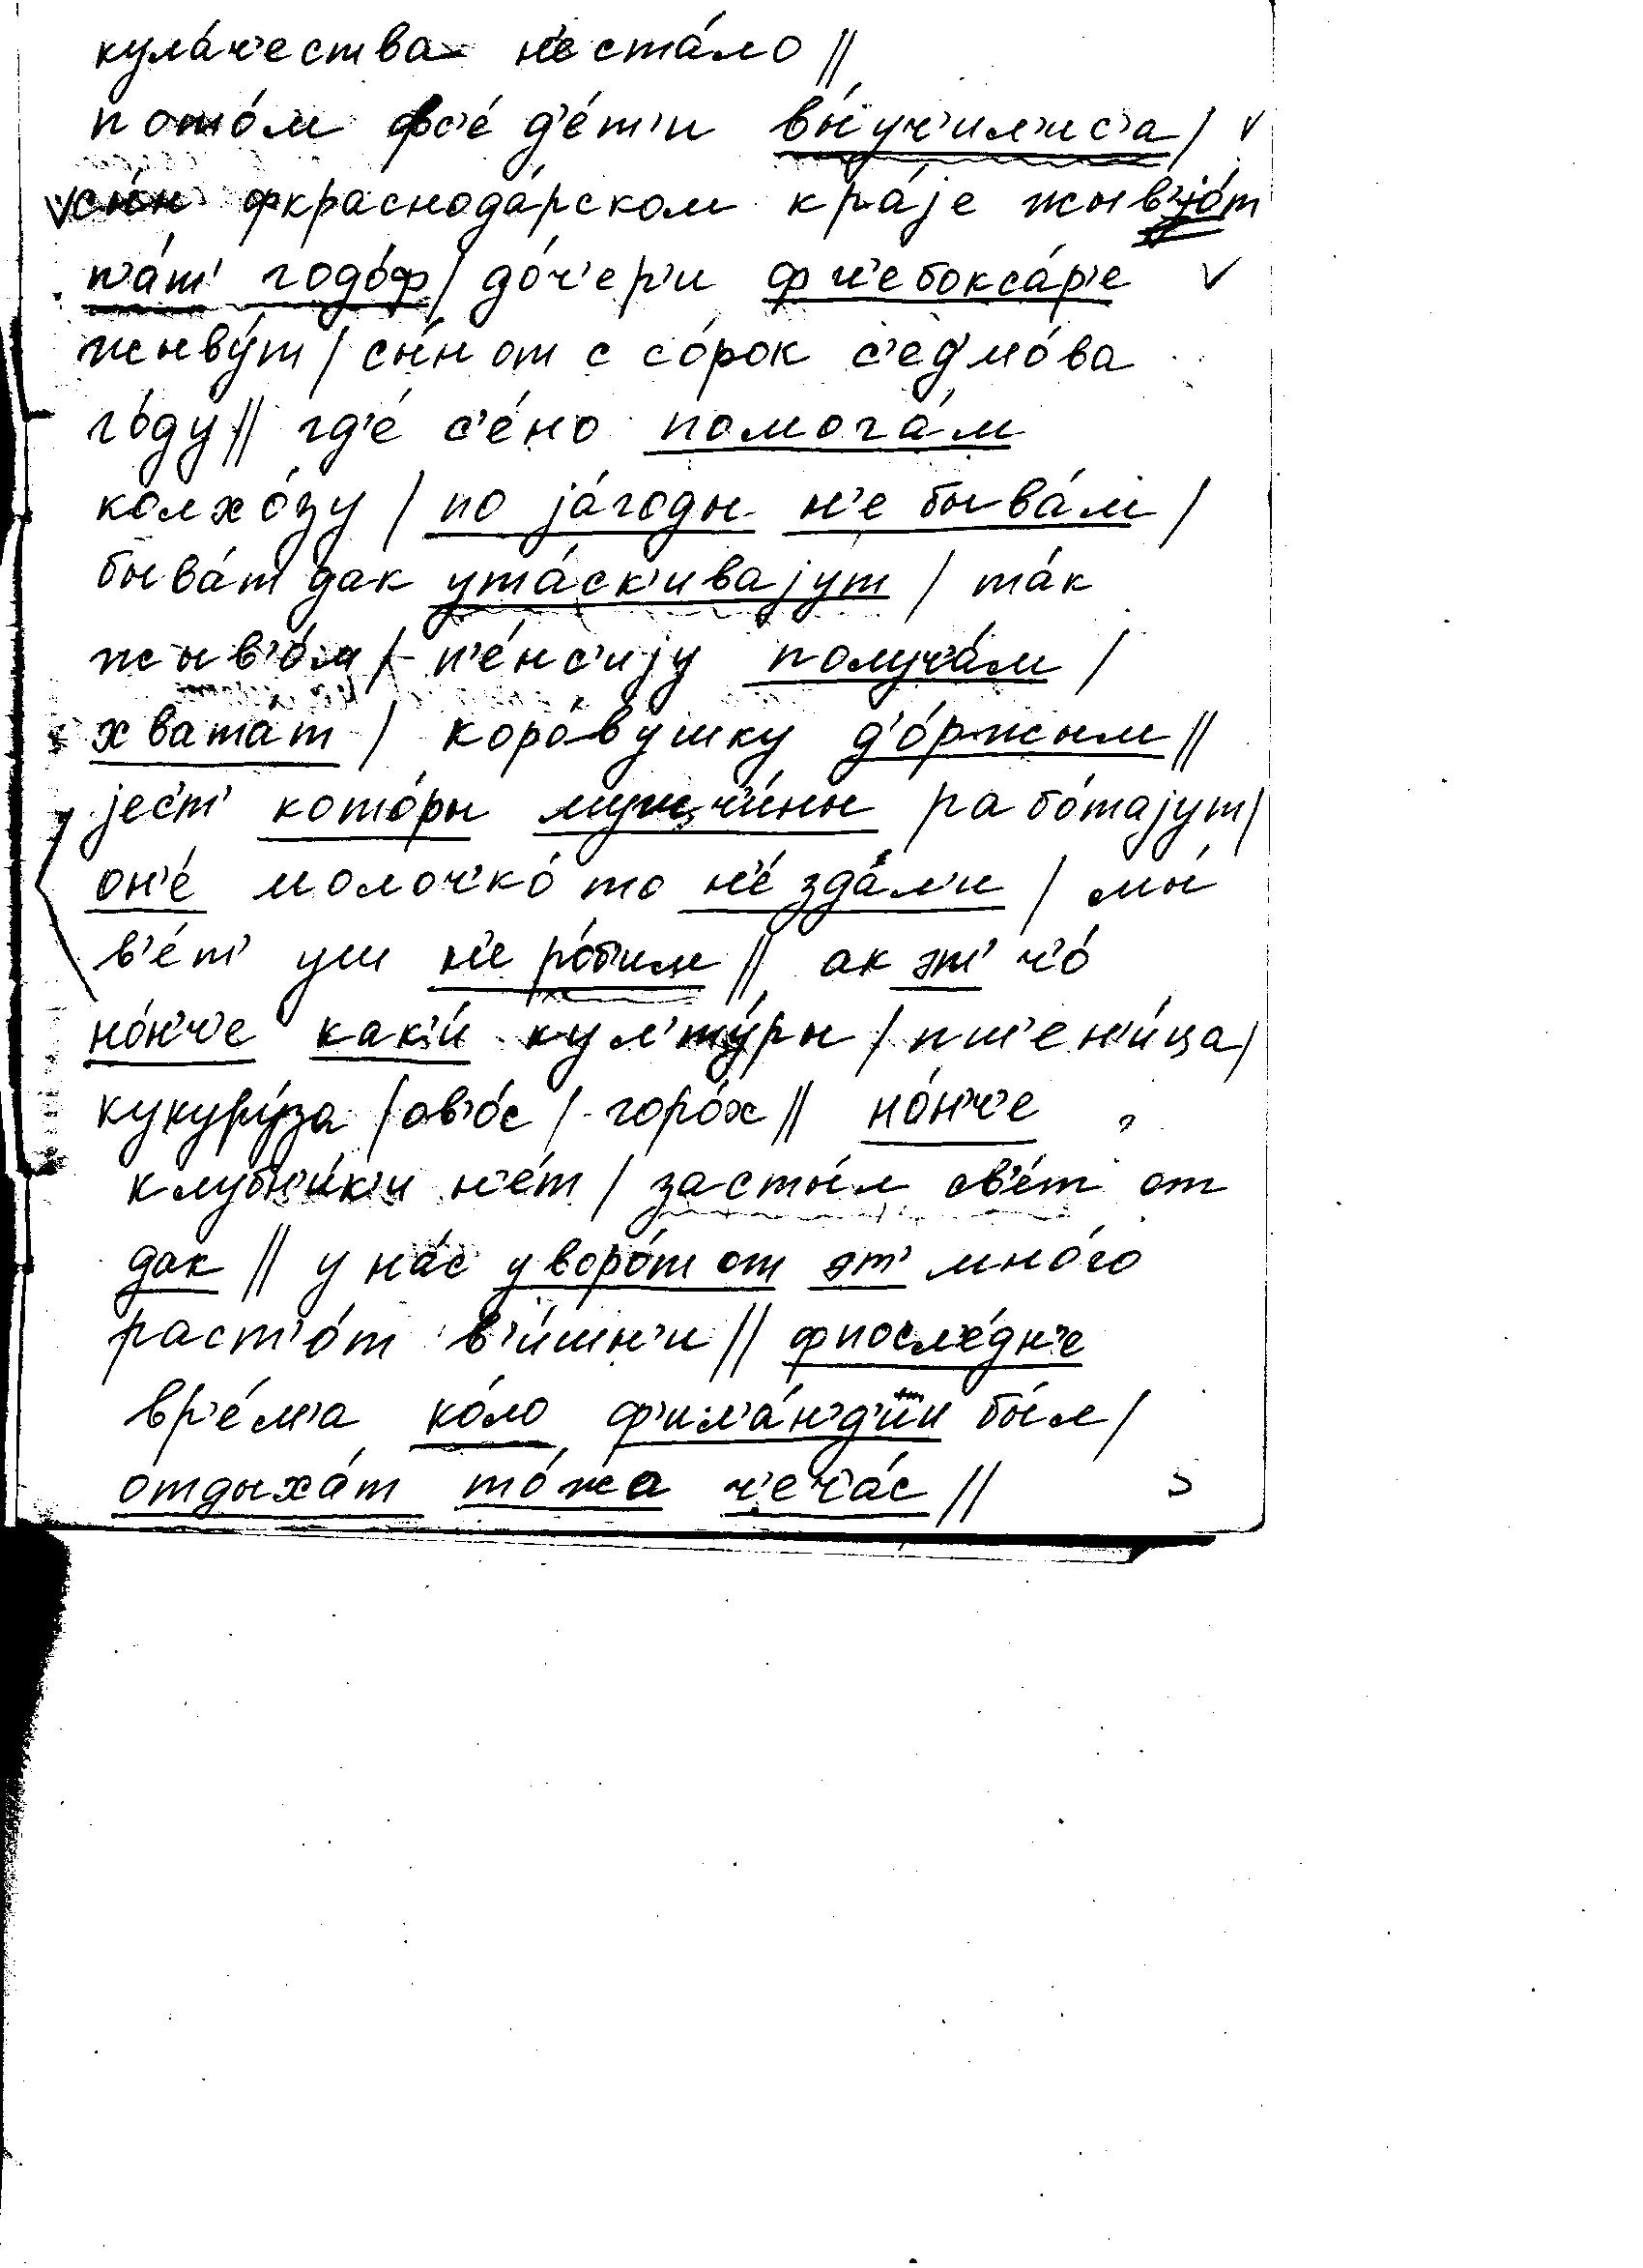 кула́ч'ества н'е ста́ло //
пото́м фс'е́ д'е́т'и вы́уч'ил'ис'а /
сы́н фкраснода́рском кра́jе жыв'jо́т
п'а́т' годо́ф / до́ч'ер'и фч'ебокса́р'е
жыву́т / сы́н от с со́рок с'едмо́ва
го́ду // гд'е́ с'е́но помога́м
колхо́зу / по jа́годы н'е быва́м /
быва́т дак ута́ск'иваjут / та́к
жыв'о́м / п'е́нс'иjу получа́м /
хвата́т / коро́вушку д'о́ржым //
jес'т' кото́ры мушч'и́ны рабо́таjут /
он'е́ молоч'ко́ то н'е́ зда́л'и / мы́
в'е́т' уш н'е ро́б'им // ак эт' ч'о́
но́н'ч'е как'и́ кул'ту́ры / пш'ен'и́ца /
кукуру́за / ов'о́с / горо́х // но́н'ч'е
клубн'и́к'и н'е́т / засты́л св'е́т от
дак // у на́с у воро́т от эт' мно́го
раст'о́т в'и́шн'и // фпосл'е́дн'е
вр'е́м'а ко́ло ф'инл'а́н'д'ии бы́л /
отдыха́т то́жа ч'еча́с //